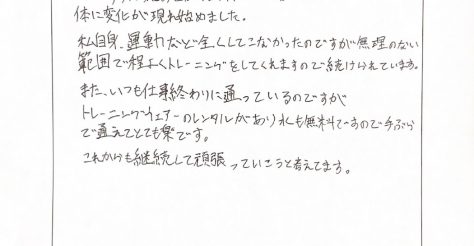 体に変化が現れ始めました。
私自身、運動など全くしてこなかったのですが無理のない
範囲で程よくトレーニングをしてくれますので続けられています。
また、いつも仕事終わりに通っているのですが
トレーニングウェアーのレンタルがありそれも無料ですので手ぶら
で通えてとても楽です。
これからも継続して頑張っていこうと考えてます。